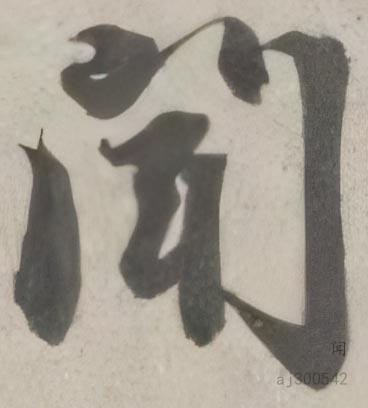 闻
闻
aj300542